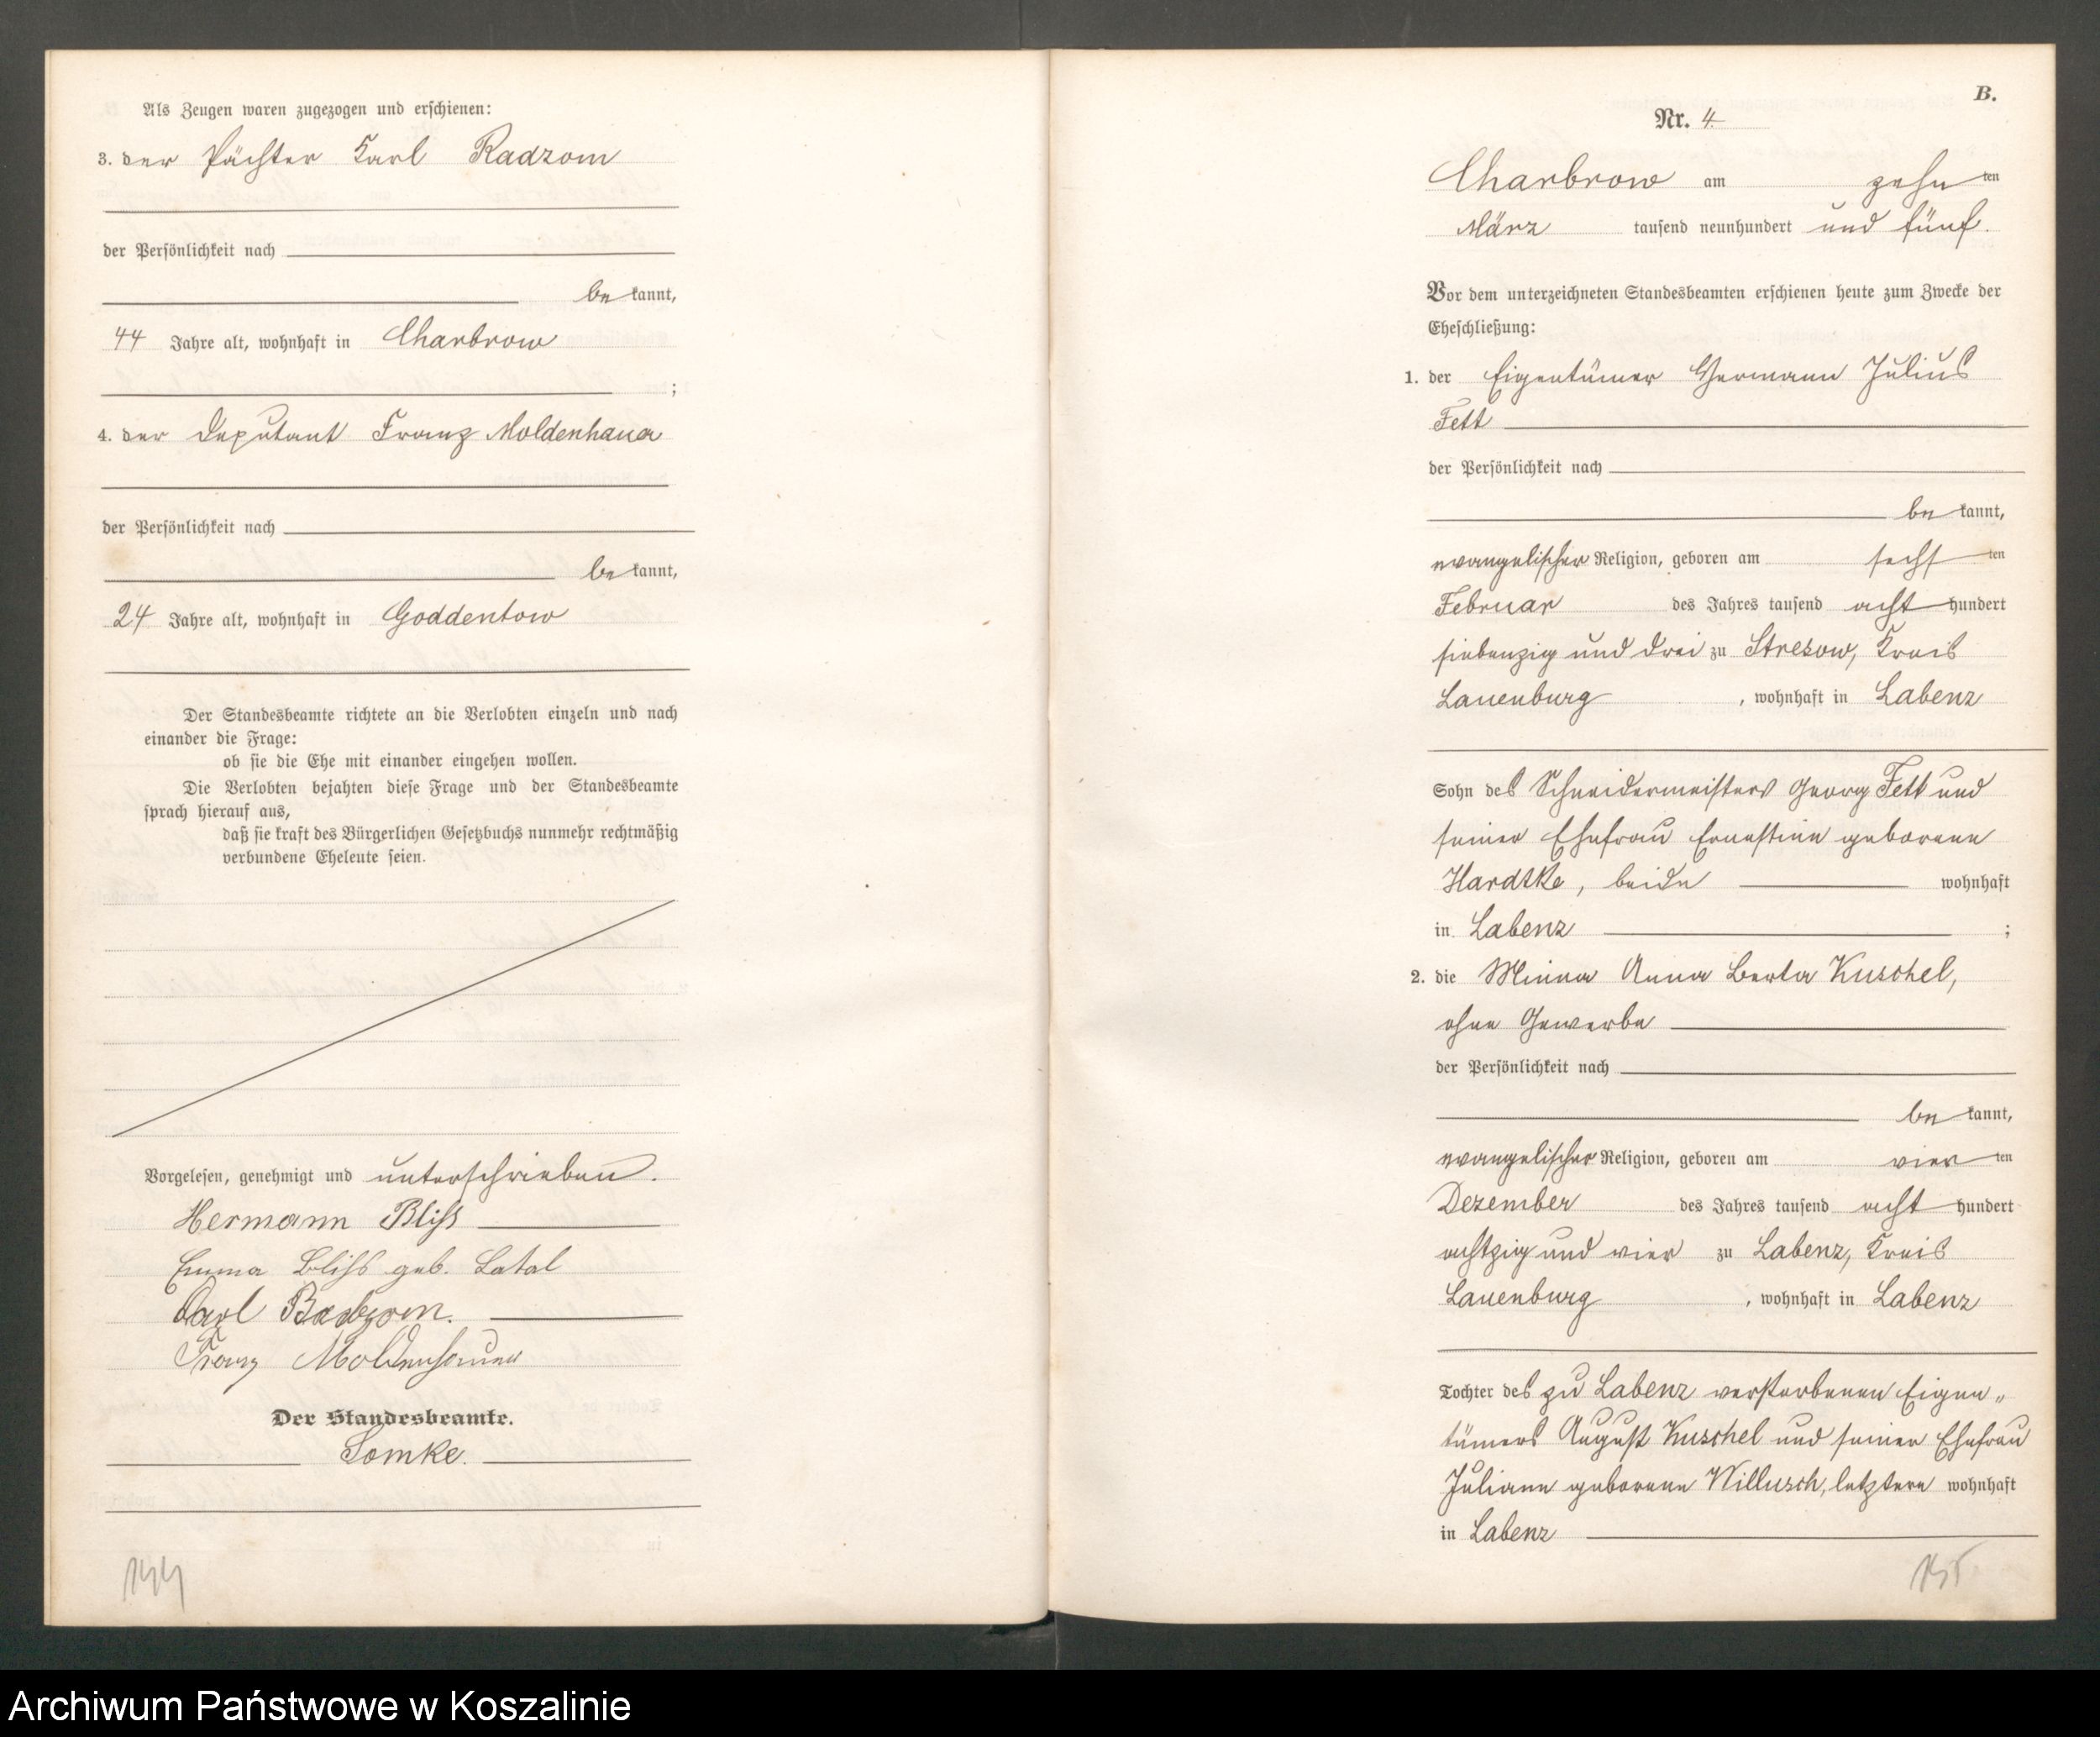 Als Zeugen waren zugezogen und erschienen:
3. der Pächter Karl Radzom
der Persönlichkeit nach
be kannt,
44 Jahre alt, wohnhaft in Charbrow
;
4. der Deputant Franz Moldenhauer
der Persönlichkeit nach
be kannt,
24 Jahre alt, wohnhaft in Goddentow
Der Standesbeamte richtete an die Verlobten einzeln und nach
einander die Frage:
ob sie die Ehe mit einander eingehen wollen.
Die Verlobten bejahten diese Frage und der Standesbeamte
sprach hierauf aus,
daß sie kraft des Bürgerlichen Gesetzbuchs nunmehr rechtmäßig
verbundene Eheleute seien.
Vorgelesen, genehmigt und unterschrieben.
Hermann Bliß
Emma Bliß geb. Latal
Carl Radzom.
Franz Moldenhauer
Der Standesbeamte.
Lomke.
144
B.
Nr. 4.
Charbrow am zehn ten
März tausend neunhundert und fünf.
Vor dem unterzeichneten Standesbeamten erschienen heute zum Zwecke der
Eheschließung:
1. der Eigentümer Hermann Julius
Fett
der Persönlichkeit nach
be kannt,
evangelischer Religion, geboren am sechs ten
Februar des Jahres tausend acht hundert
siebenzig und drei zu Stresow, Kreis
Lauenburg , wohnhaft in Labenz
Sohn des Schneidermeisters Georg Fett und
seiner Ehefrau Ernestine geborene
Hardtke, beide wohnhaft
in Labenz ;
2. die Minna Anna Berta Kuschel,
ohne Gewerbe
der Persönlichkeit nach
be kannt,
evangelischer Religion, geboren am vier ten
Dezember des Jahres tausend acht hundert
achtzig und vier zu Labenz, Kreis
Lauenburg , wohnhaft in Labenz
Tochter des zu Labenz verstorbenen Eigen„
tümers August Kuschel und seiner Ehefrau
Juliane geborene Willusch, letztere wohnhaft
in Labenz
Archiwum Państwowe w Koszalinie